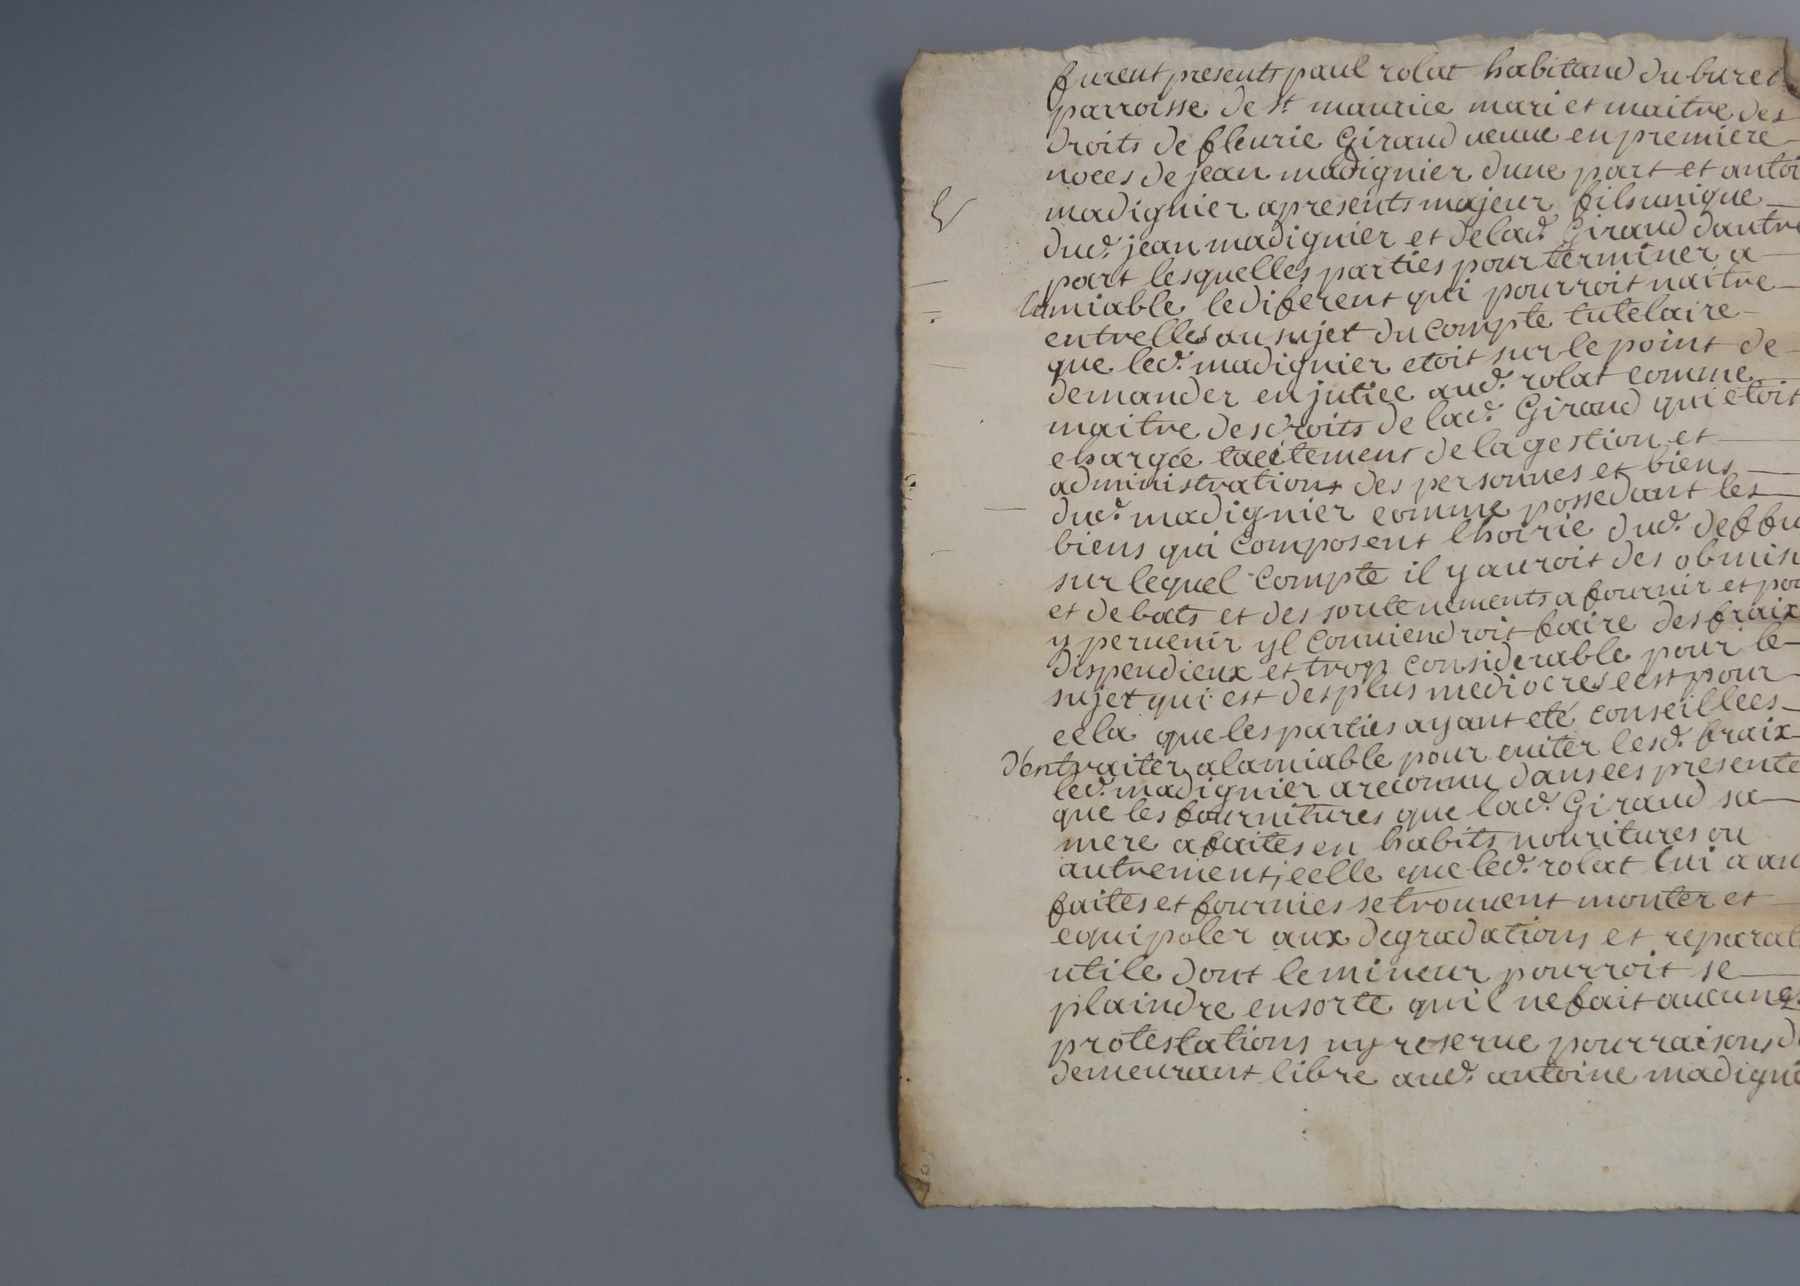 furent presents paul rolat habitand du buret
parroisse de st maurice mari et maitre des
droits de fleurie Giraud veuve en premiere
noces de jean madignier dune part et antoi
madignier apresents majeur fils unique
dud. jean madignier et de lad. Giraud dautre
part lesquelles parties pour terminer a
lamiable le diferent qui pourroit naitre
entrelles au sujet du compte tutelaire
que led. madignier etoit sur le point de
demander en jutice aud. rolat comme
maitre des droits de lad. Giraud qui etoit
chargée tacitement de la gestion et
administrations des personnes et biens
dud. madignier comme possedant les
biens qui composent lhoirie dud. deffu
sur lequel compte il y auroit des obmis
et debats et des soutenements a fournir et pou
y pervenir yl conviendroit faire des fraix
dispendieux et trop considerable pour le
sujet qui est des plus mediocres cest pour
cela que les parties ayant eté conseillées
d'en traiter a lamiable pour eviter lesd. fraix
led. madignier a reconnu dans ces presente
que les fournitures que lad. Giraud sa
mere a faites en habits nouritures ou
autrement, celle que led. rolat lui a au
faites et fournies se trouvent monter et
equipoler aux degradations et reparat
utile dont le mineur pourroit se
plaindre en sorte quil ne fait aucunes
protestations ny reserve pour raisons d
demeurant libre aud. antoine madigni